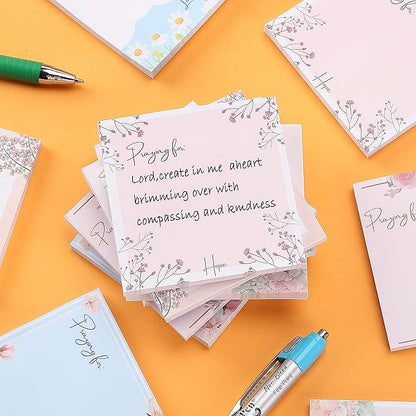 Praying for:
Lord,create in me aheart
brimming over with
compassing and kmdness
Hope
Hope
Praying for:
Praying for:
Praying for: